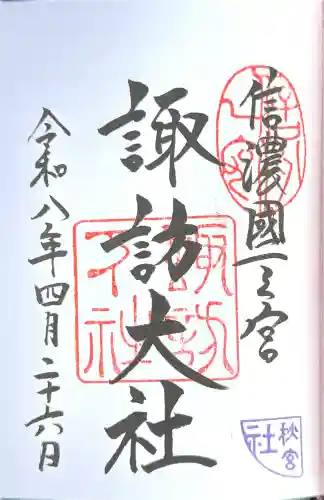 信濃國一之宮
諏訪大社
令和八年四月二十六日
諏訪大社
秋宮
社